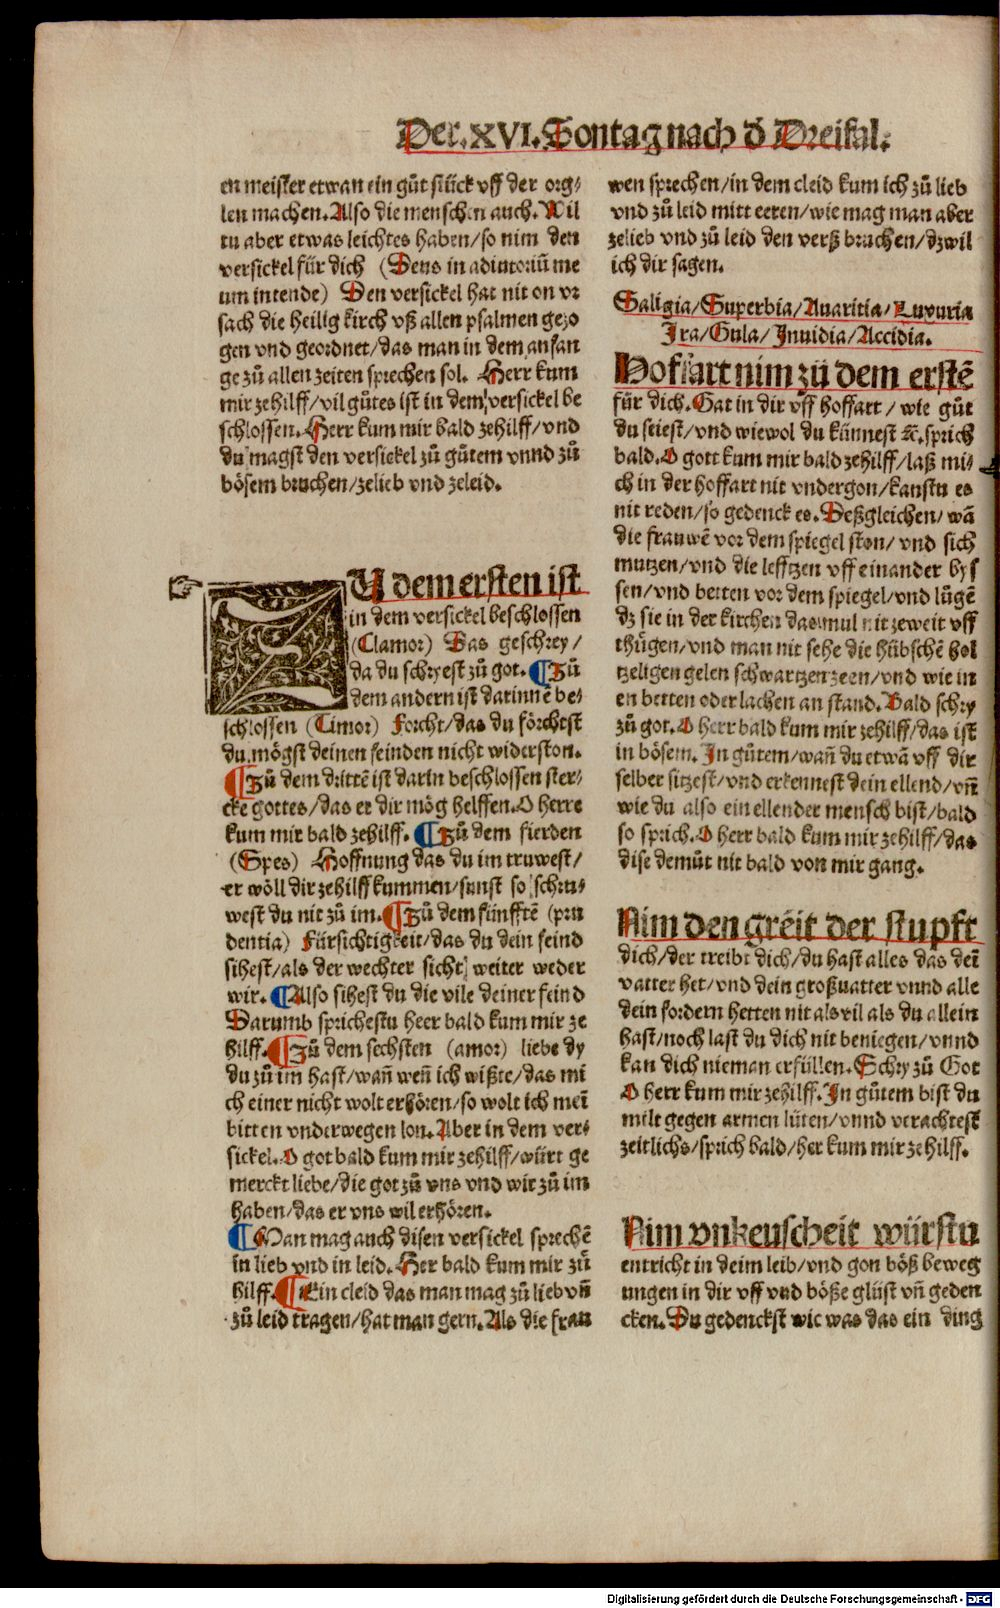 Der. XVI. Sontag nach d̄ Dreifal.
en meister etwan ein gůt stück vff der org⸗
len machen. Also die menschen auch. Wil
tu aber etwas leichtes haben/so nim den
versickel für dich (Deus in adiutoriū me
um intende) Den versickel hat nit on vr
sach die heilig kirch vß allen psalmen gezo
gen vnd geordnet/das man in dem anfan
ge zů allen zeiten sprechen sol. Herr kum
mir ze hilff/vil gůtes ist in dem versickel be
schlossen. Herr kum mir bald ze hilff/vnd
du magst den versickel zů gůtem vnnd zů
bösem bruchen/ze lieb vnd ze leid.
ZU dem ersten ist
in dem versickel beschlossen
(Clamor) Das geschrey/
da du schryest zů got. ¶ Zů
dem andern ist darinnē be⸗
schlossen (Timor) Forcht/das du förchtst
du mögst deinen feinden nicht widerston.
¶ Zů dem drittē ist darin beschlossen ster⸗
cke gottes/das er dir mög helffen. O herre
kum mir bald ze hilff. ¶ Zů dem fierden
(Spes) Hoffnung das du im truwest/
er wöll dir ze hilff kummen/sunst so schru⸗
west du nit zů im. ¶ Zů dem fünfftē (pru
dentia) Fürsichtigkeit/das du dein feind
sihest/als der wechter sicht weiter weder
wir. ¶ Also sihest du die vile deiner feind
Darumb sprichestu heer bald kum mir ze
hilff. ¶ Zů dem sechsten (amor) liebe dy
du zů im hast/wañ weñ ich wißte/das mi
ch einer nicht wolt erhören/so wolt ich meī
bitten vnderwegen lon. Aber in dem ver⸗
sickel. O got bald kum mir ze hilff/würt ge
merckt liebe/die got zů vns vnd wir zů im
haben/das er vns wil erhören.
¶ Man mag auch disen versickel sprechē
in lieb vnd in leid. Her bald kum mir zů
hilff. ¶ Ein cleid das man mag zů lieb vñ
zů leid tragen/hat man gern. Als die frau
wen sprechen/in dem cleid kum ich zů lieb
vnd zů leid mitt eeren/wie mag man aber
ze lieb vnd zů leid den verß bruchen/dz wil
ich dir sagen.
Saligia/Superbia/Auaritia/Luxuria
Ira/Gula/Inuidia/Accidia.
Hoffart nim zů dem erstē
für dich. Gat in dir vff hoffart/wie gůt
du seiest/vnd wie wol du künnest ꝛc. sprich
bald. O gott kum mir bald ze hilff/laß mi⸗
ch in der hoffart nit vndergon/kanstu es
nit reden/so gedenck es. Deßgleichen/wā
die frauwē vor dem spiegel ston/vnd sich
mutzen/vnd die lefftzen vff einander bys
sen/vnd betten vor dem spiegel/vnd lůgē
dz sie in der kirchen das mul nit ze weit vff
thügen/vnd man nit sehe die hübschē hol
tzeligen gelen schwartzen zeen/vnd wie in
en betten oder lachen an stand. Bald schry
zů got. O herr bald kum mir ze hilff/das ist
in bösem. In gůtem/wañ du etwā vff dir
selber sitzest/vnd erkennest dein ellend/vñ
wie du also ein ellender mensch bist/bald
so sprich. O herr bald kum mir ze hilff/das
dise demůt nit bald von mir gang.
Nim den greit der stupft
dich/der treibt dich/du hast alles das deī
vatter het/vnd dein großuatter vnnd alle
dein fordern hetten nit als vil als du allein
hast/noch last du dich nit beniegen/vnnd
kan dich nieman erfüllen. Schry zů Got
O herr kum mir ze hilff. In gůtem bist du
milt gegen armen lüten/vnnd verachtest
zeitlichs/sprich bald/her kum mir ze hilff.
Nim vnkeuscheit würstu
entricht in deim leib/vnd gon böß beweg
ungen in dir vff vnd böße glüst vñ geden
cken. Du gedenckst wie was das ein ding
Digitalisierung gefördert durch die Deutsche Forschungsgemeinschaft - DFG